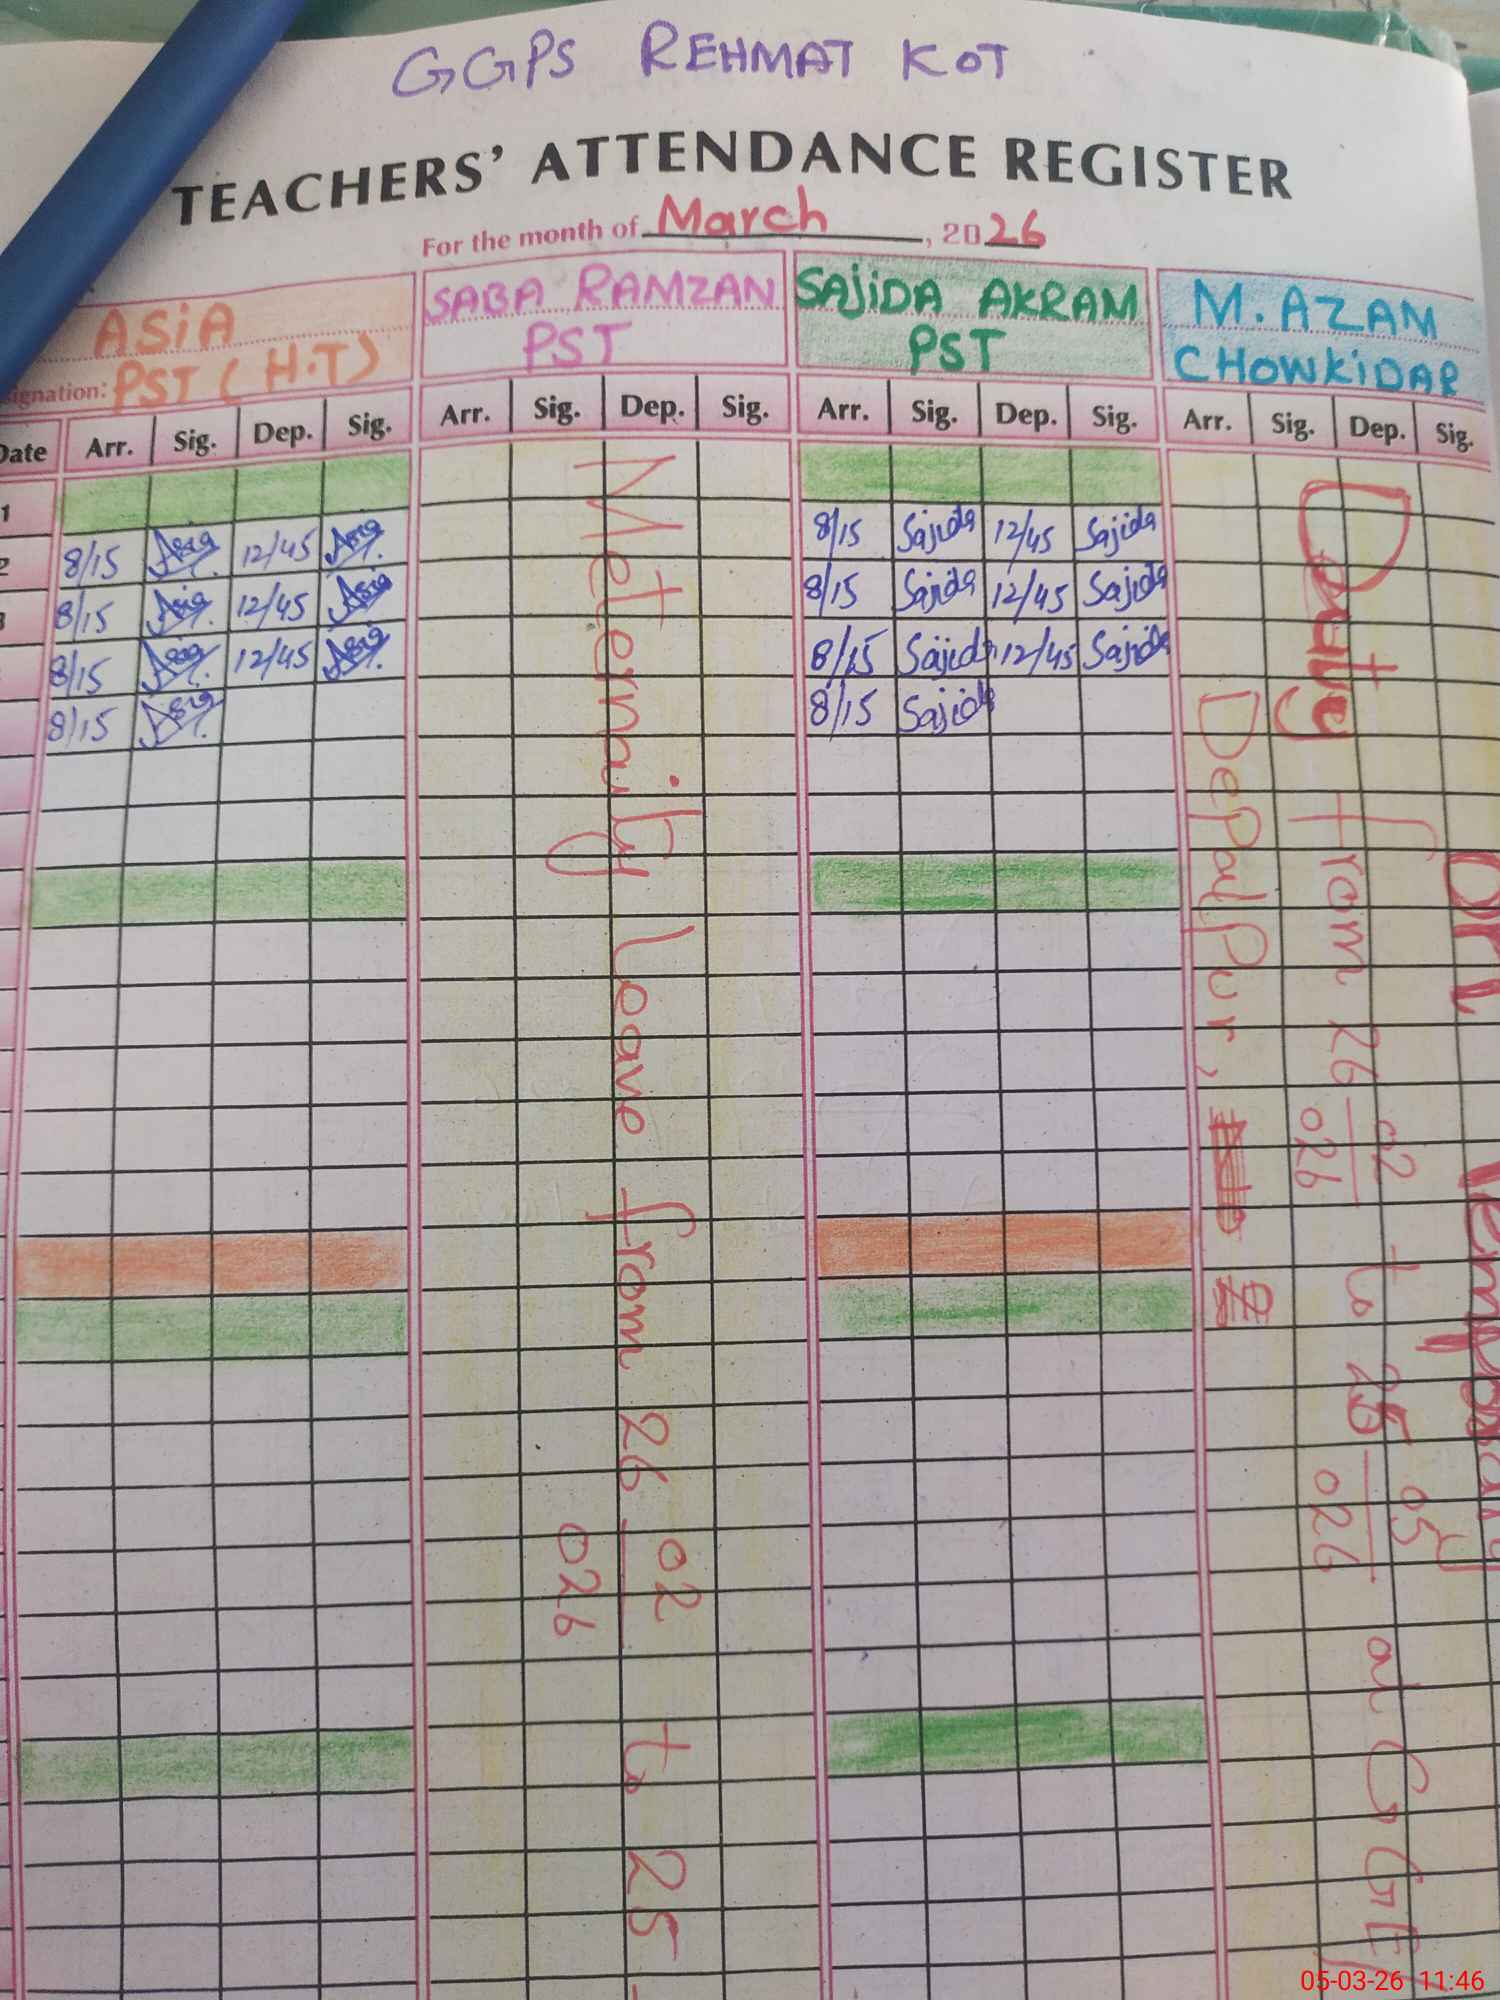 GGPS REHMAT KOT
TEACHERS' ATTENDANCE REGISTER
For the month of March, 2026
ASiA SABA RAMZAN SAJiDA AKRAM M. AZAM
ignation: PST (H.T) PST PST CHOWKiDAR
Date Arr. Sig. Dep. Sig. Arr. Sig. Dep. Sig. Arr. Sig. Dep. Sig. Arr. Sig. Dep. Sig.
1
2 8/15 Asia 12/45 Asia 8/15 Sajida 12/45 Sajida
3 8/15 Asia 12/45 Asia 8/15 Sajida 12/45 Sajida
8/15 Asia 12/45 Asia 8/15 Sajida 12/45 Sajida
8/15 Asia 8/15 Sajida
Meternaity leave from 26 02/026 to 25
Duty from 26 02/026 to 25 05/026 at GGE
DePalPur,
05-03-26 11:46